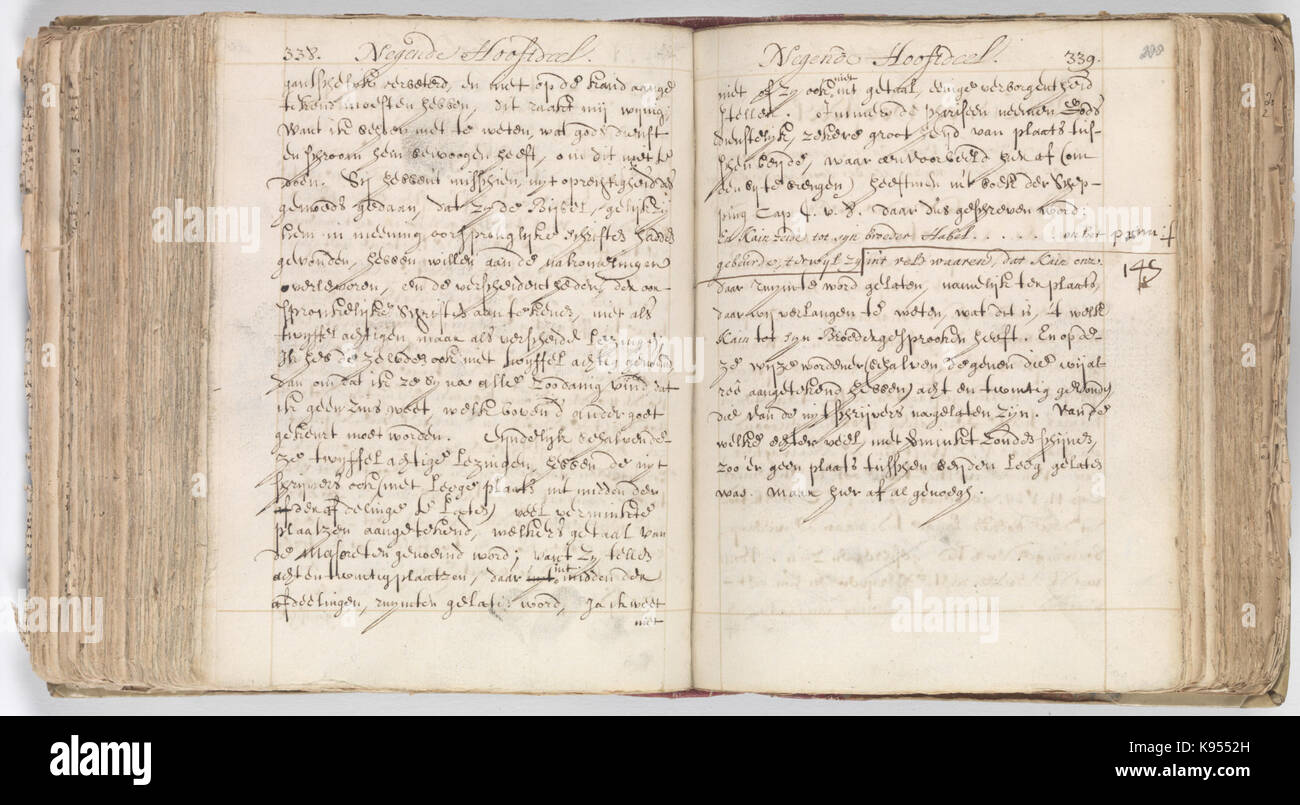 338. Negende Hooftdeel.
gantschelyk verbeterd, en niet op de kand aange
tekend moesten hebben, dit raakt mij wijnig;
Want ik behoev niet te weten, wat godsdienst
en schroom hem bewoogen heeft, om dit niet te
doen. Sij hebben't misschien, uyt oprechtigheid des
gemoeds gedaan, dat zy de Bijbel, gelijk zy
hem in weinig oorspronglijke schriften hadden
gevonden, hebben willen aan de nakomelingen
overleveren, en de verscheidentheden, der oor
spronkelijke Schriften aantekenen, niet als
twyffelachtigen, maar als verscheide Lezingen;
Ik heb de zelve ook niet twyffelachtig genoemd
dan omdat ik ze byna alle zoodanig vind, dat
ik geenzins weet, welke boven d' ander goet
gekeurt moet worden. Eyndelijk behalven de
ze twyffelachtige Lezingen, hebben de uyt
schrijvers ook (met Leege plaats in't midden der
afdelinge te Laten) veel verminkte
plaatzen aangetekend, welkers getaal van
de Masoreten genoemd word; want zy tellen
achtentwintig plaatzen, daar in't midden der
afdeelingen, ruymte gelaten word, Ja ik weet
niet
Negende Hoofdeel. 339.
niet of zy ook in't getaal, eenige verborgentheid
niet
stellen. Immers de phariseen neemen Gods
dienstelijk, zekere grootheijd van plaats tus-
schen beyde, waar een voorbeeld hier af (om
een by te brengen) heeft men in't boek der Schep-
ping Cap 4. v. 8. daar dus geschreven word,
En Kain zeide tot syn broeder Habel. . . . . en het
gebeurde, terwyl zy in't veld waaren, dat Kain enz.
145
daar ruymte word gelaten, namelijk ter plaats,
daar wy verlangen te weten, wat dit is, 't welk
Kain tot syn Broeder gesprooken heeft. En op de-
ze wijze worden er (behalven degenen die wij al-
reê aangetekend hebben) acht en twintig gevonden
die van de uytschrijvers nagelaten zijn. Van de
welke echter veel, niet verminkt zouden schynen,
zoo'er geen plaats tusschen beyden leeg gelaten
was. Maar hier af al genoegh.
alamy
alamy stock photo
K9552H
www.alamy.com